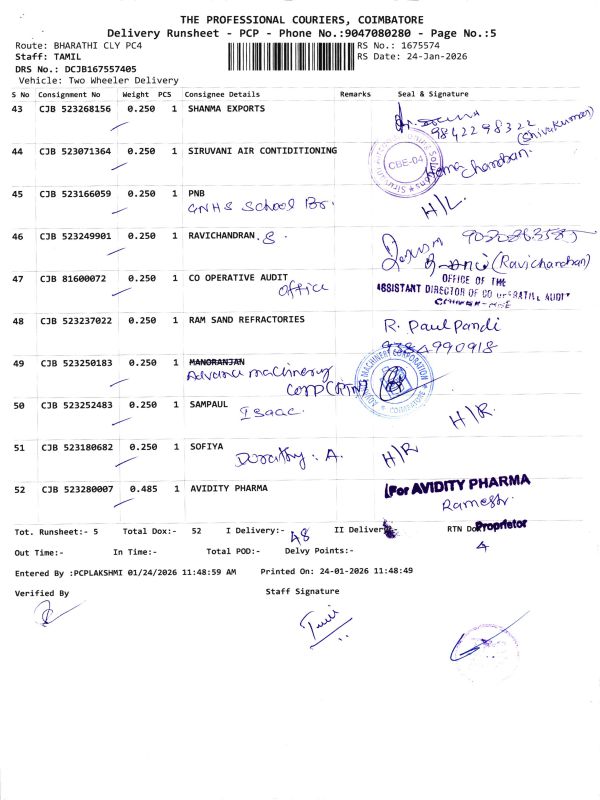 THE PROFESSIONAL COURIERS, COIMBATORE
Delivery Runsheet - PCP - Phone No.:9047080280 - Page No.:5
Route: BHARATHI CLY PC4
RS No.: 1675574
Staff: TAMIL
RS Date: 24-Jan-2026
DRS No.: DCJB167557405
Vehicle: Two Wheeler Delivery
S No Consignment No Weight PCS Consignee Details Remarks Seal & Signature
43 CJB 523268156 0.250 1 SHANMA EXPORTS
9842298322
(Shivakumar)
44 CJB 523071364 0.250 1 SIRUVANI AIR CONTIDITIONING
CBE-04
chandran.
45 CJB 523166059 0.250 1 PNB
GNHS School Br.
H/L.
46 CJB 523249901 0.250 1 RAVICHANDRAN. S.
(Ravichandran)
47 CJB 81600072 0.250 1 CO OPERATIVE AUDIT
office
OFFICE OF THE
ASSISTANT DIRECTOR OF CO OPERATIVE AUDIT
48 CJB 523237022 0.250 1 RAM SAND REFRACTORIES
R. Paul Pandi
9384990918
49 CJB 523250183 0.250 1 MANORANJAN
Advance machinery
Corp (RTN)
MACHINERY CORPORATION
COIMBATORE
50 CJB 523252483 0.250 1 SAMPAUL
Isaac.
H/R.
51 CJB 523180682 0.250 1 SOFIYA
Dorathy. A.
H/R
52 CJB 523280007 0.485 1 AVIDITY PHARMA
For AVIDITY PHARMA
Ramesh.
Proprietor
Tot. Runsheet:- 5 Total Dox:- 52 I Delivery:- 48 II Delivery:- RTN Do
4
Out Time:- In Time:- Total POD:- Delvy Points:-
Entered By :PCPLAKSHMI 01/24/2026 11:48:59 AM Printed On: 24-01-2026 11:48:49
Verified By Staff Signature